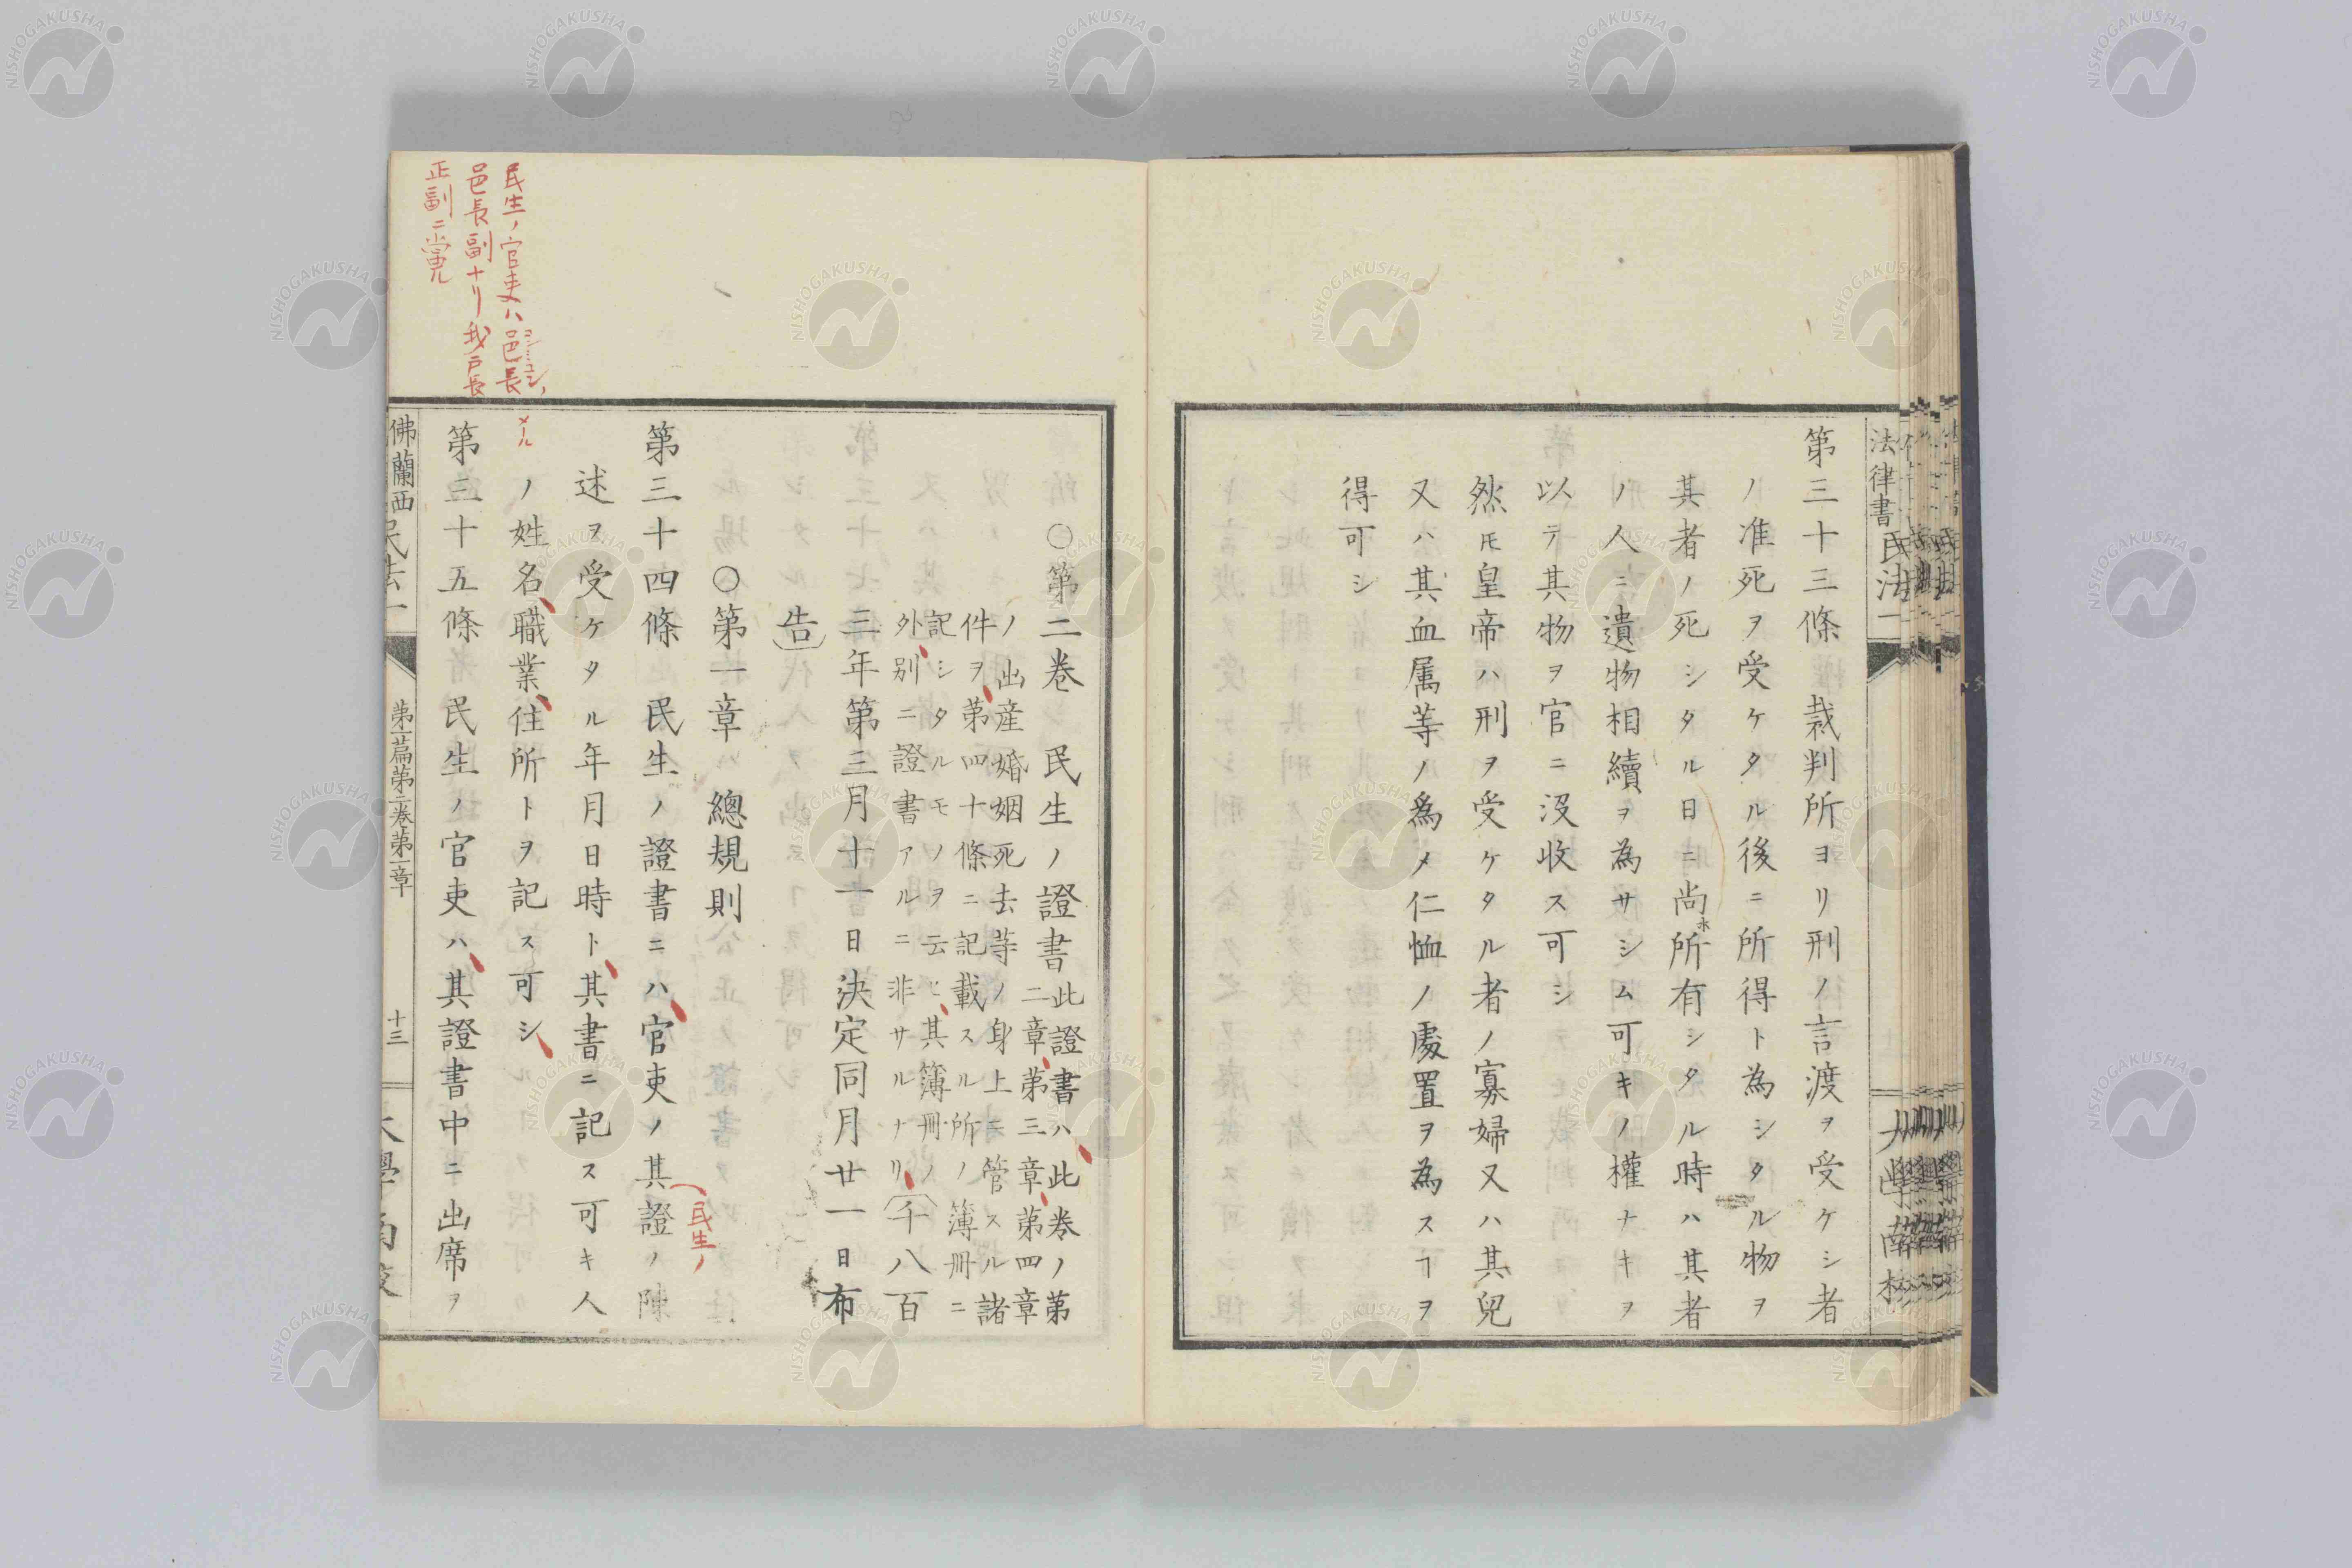 法律書 民法一
第三十三條 裁判所ヨリ刑ノ言渡ヲ受ケシ者
ノ准死ヲ受ケタル後ニ所得ト為シタル物ヲ
其者ノ死シタル日ニ尚ホ所有シタル時ハ其者
ノ人ニ遺物相續ヲ為サシム可キノ權ナキヲ
以テ其物ヲ官ニ沒收ス可シ
然𪜈皇帝ハ刑ヲ受ケタル者ノ寡婦又ハ其兒
又ハ其血属等ノ爲メ仁恤ノ處置ヲ為スヿヲ
得可シ
〇第二巻 民生ノ證書此證書ハ此巻ノ第
二章第三章第四章
ノ出産婚姻死去等ノ身上ニ管スル諸
件ヲ第四十條ニ記載スル所ノ簿冊ニ
記シタルモノヲ云ヒ其簿冊ノ
外別ニ證書アルニ非サルナリ(千八百
三年第三月十一日決定同月廿一日布
告)
〇第一章 總規則
第三十四條 民生ノ證書ニハ官吏ノ其證ノ陳
民生ノ
述ヲ受ケタル年月日時ト其書ニ記ス可キ人
ノ姓名職業住所トヲ記ス可シ
第三十五條 民生ノ官吏ハ其證書中ニ出席ヲ
民生ノ官吏ハ邑長
メール
邑長副ナリ我戸長
正副ニ當ル
佛蘭西民法一 第一篇第二巻第一章 十三